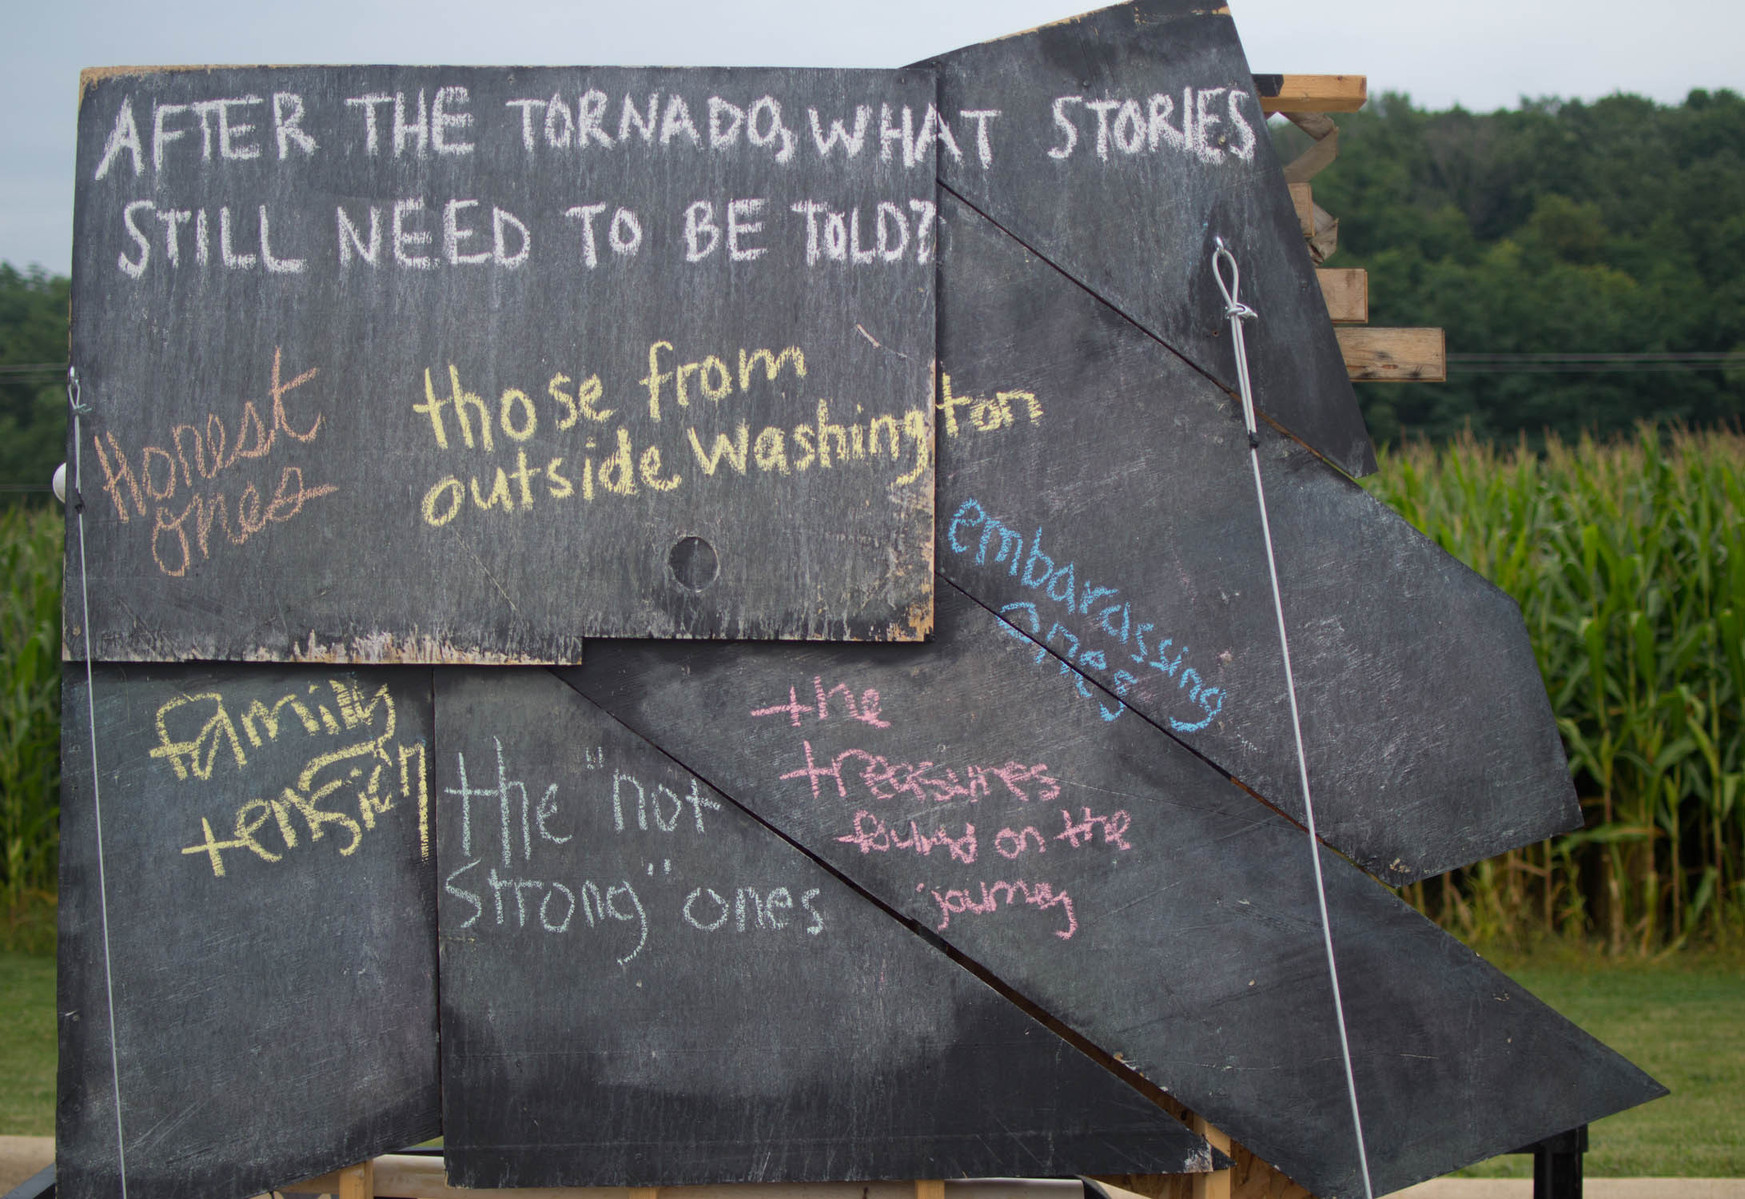 AFTER THE TORNADO, WHAT STORIES
STILL NEED TO BE TOLD?
Honest
ones
those from
outside Washington
embarassing
ones
family
tension
the "not
Strong" ones
the
treasures
found on the
journey